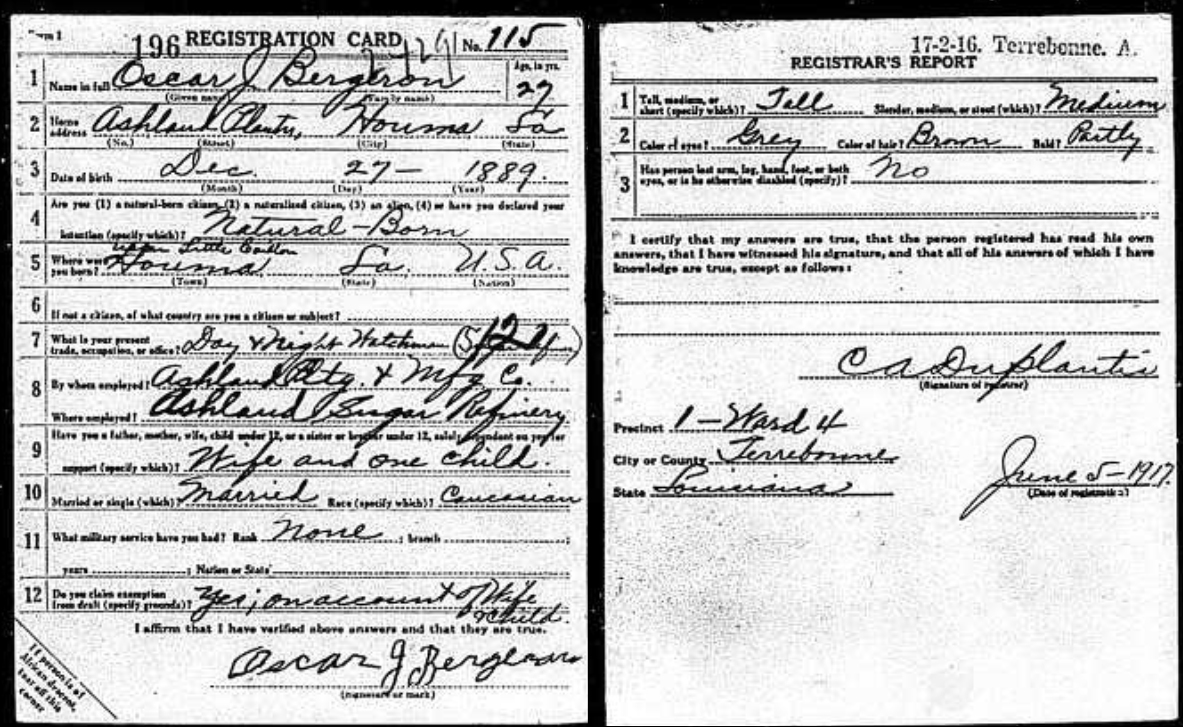 Form 1
196 REGISTRATION CARD No. 115
1 Name in full Oscar J Bergeron Age, in yrs. 27
(Given name) (Family name)
2 Home address Ashland Plants, Houma La
(No.) (Street) (City) (State)
3 Date of birth Dec. 27 - 1889.
(Month) (Day) (Year)
4 Are you (1) a natural-born citizen, (2) a naturalized citizen, (3) an alien, (4) or have you declared your
intention (specify which)? Natural-Born
upper Little
5 Where were you born? Houma La. U.S.A.
(Town) (State) (Nation)
6 If not a citizen, of what country are you a citizen or subject?
7 What is your present trade, occupation, or office? Day & Night Watchman 121
8 By whom employed? Ashland Pltg. & Mfg Co.
Where employed? Ashland Sugar Refinery
9 Have you a father, mother, wife, child under 12, or a sister or brother under 12, solely dependent on you for
support (specify which)? Wife and one child.
10 Married or single (which)? Married Race (specify which)? Caucasian
11 What military service have you had? Rank None ; branch ;
years ; Nation or State
12 Do you claim exemption from draft (specify grounds)? Yes; on account of Wife
& Child.
I affirm that I have verified above answers and that they are true.
Oscar J Bergeron
(Signature or mark)
If person is of
African descent,
tear off this
corner
17-2-16. Terrebonne. A.
REGISTRAR'S REPORT
1 Tall, medium, or short (specify which)? Tall Slender, medium, or stout (which)? Medium
2 Color of eyes? Grey Color of hair? Brown Bald? Partly
3 Has person lost arm, leg, hand, foot, or both eyes, or is he otherwise disabled (specify)? No
I certify that my answers are true, that the person registered has read his own
answers, that I have witnessed his signature, and that all of his answers of which I have
knowledge are true, except as follows:
C A Duplantis
(Signature of registrar)
Precinct 1 - Ward 4
City or County Terrebonne
State Louisiana
June 5 - 1917.
(Date of registration)